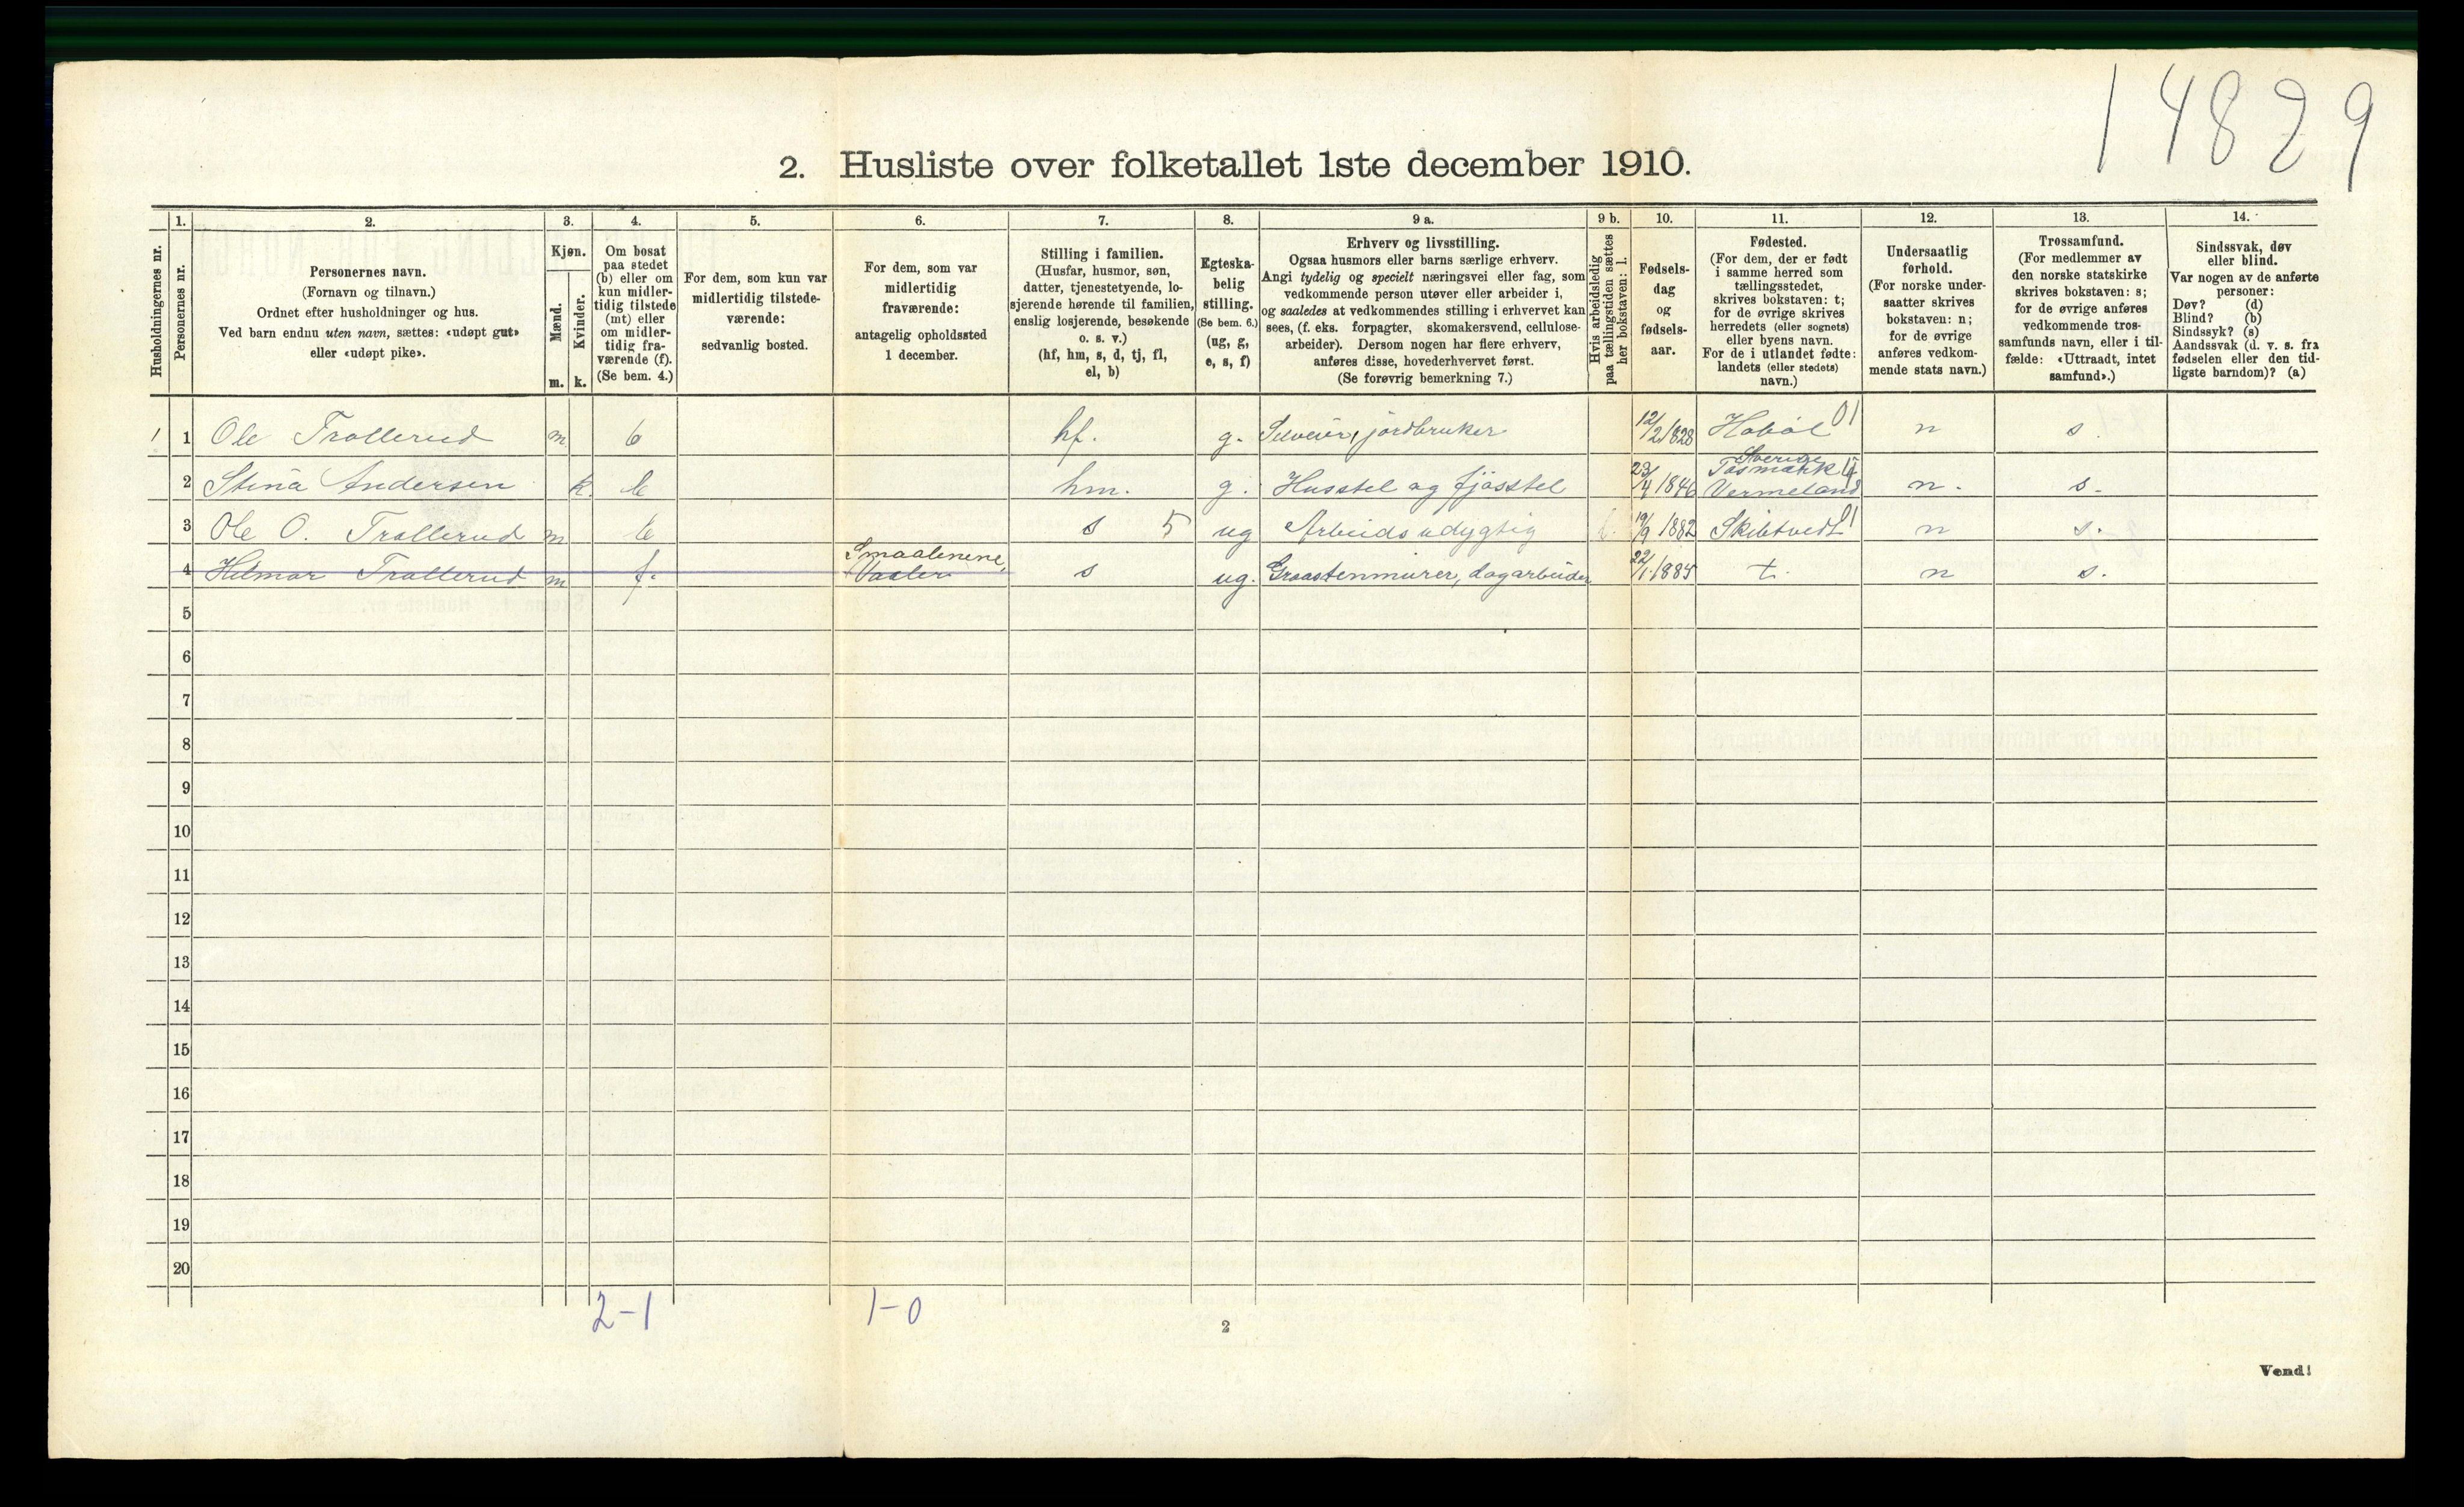 14829
2. Husliste over folketallet 1ste december 1910.
Husholdningernes nr.
1.
Personernes nr.
2.
Personernes navn.
(Fornavn og tilnavn.)
Ordnet efter husholdninger og hus.
Ved barn endnu uten navn, sættes: «udøpt gut»
eller «udøpt pike».
3.
Kjøn.
Mænd.
Kvinder.
m.
k.
4.
Om bosat
paa stedet
(b) eller om
kun midler-
tidig tilstede
(mt) eller
om midler-
tidig fra-
værende (f).
(Se bem. 4.)
5.
For dem, som kun var
midlertidig tilstede-
værende:
sedvanlig bosted.
6.
For dem, som var
midlertidig
fraværende:
antagelig opholdssted
1 december.
7.
Stilling i familien.
(Husfar, husmor, søn,
datter, tjenestetyende, lo-
sjerende hørende til familien,
enslig losjerende, besøkende
o. s. v.)
(hf, hm, s, d, tj, fl,
el, b)
8.
Egteska-
belig
stilling.
(Se bem. 6.)
(ug, g,
e, s, f)
9 a.
Erhverv og livsstilling.
Ogsaa husmors eller barns særlige erhverv.
Angi tydelig og specielt næringsvei eller fag, som
vedkommende person utøver eller arbeider i,
og saaledes at vedkommendes stilling i erhvervet kan
sees, (f. eks. forpagter, skomakersvend, cellulose-
arbeider). Dersom nogen har flere erhverv,
anføres disse, hovederhvervet først.
(Se forøvrig bemerkning 7.)
9 b.
Hvis arbeidsledig
paa tællingstiden sættes
her bokstaven: l.
10.
Fødsels-
dag
og
fødsels-
aar.
11.
Fødested.
(For dem, der er født
i samme herred som
tællingsstedet,
skrives bokstaven: t;
for de øvrige skrives
herredets (eller sognets)
eller byens navn.
For de i utlandet fødte:
landets (eller stedets)
navn.)
12.
Undersaatlig
forhold.
(For norske under-
saatter skrives
bokstaven: n;
for de øvrige
anføres vedkom-
mende stats navn.)
13.
Trossamfund.
(For medlemmer av
den norske statskirke
skrives bokstaven: s;
for de øvrige anføres
vedkommende tros-
samfunds navn, eller i til-
fælde: «Uttraadt, intet
samfund».)
14.
Sindssvak, døv
eller blind.
Var nogen av de anførte
personer:
Døv? (d)
Blind? (b)
Sindssyk? (s)
Aandssvak (d. v. s. fra
fødselen eller den tid-
ligste barndom)? (a)
1 1 Ole Trollerud m b hf. g. Selveier, jordbruker 12/2 1828 Hobøl 01 n s.
2 Stina Andersen k. b hm. g. Husstel og fjøsstel 23/4 1846 Sverige Tøsmark Vermeland n. s.
3 Ole O. Trollerud m b s 5 ug Arbeidsudygtig 19/9 1882 Skibtvedt 01 n s.
4 Hilmar Trollerud m f. Smaalenene, Vaaler s ug. Graastenmurer, dagarbeider 22/1 1885 t. n s.
5
6
7
8
9
10
11
12
13
14
15
16
17
18
19
20
2-1 1-0
2
Vend!